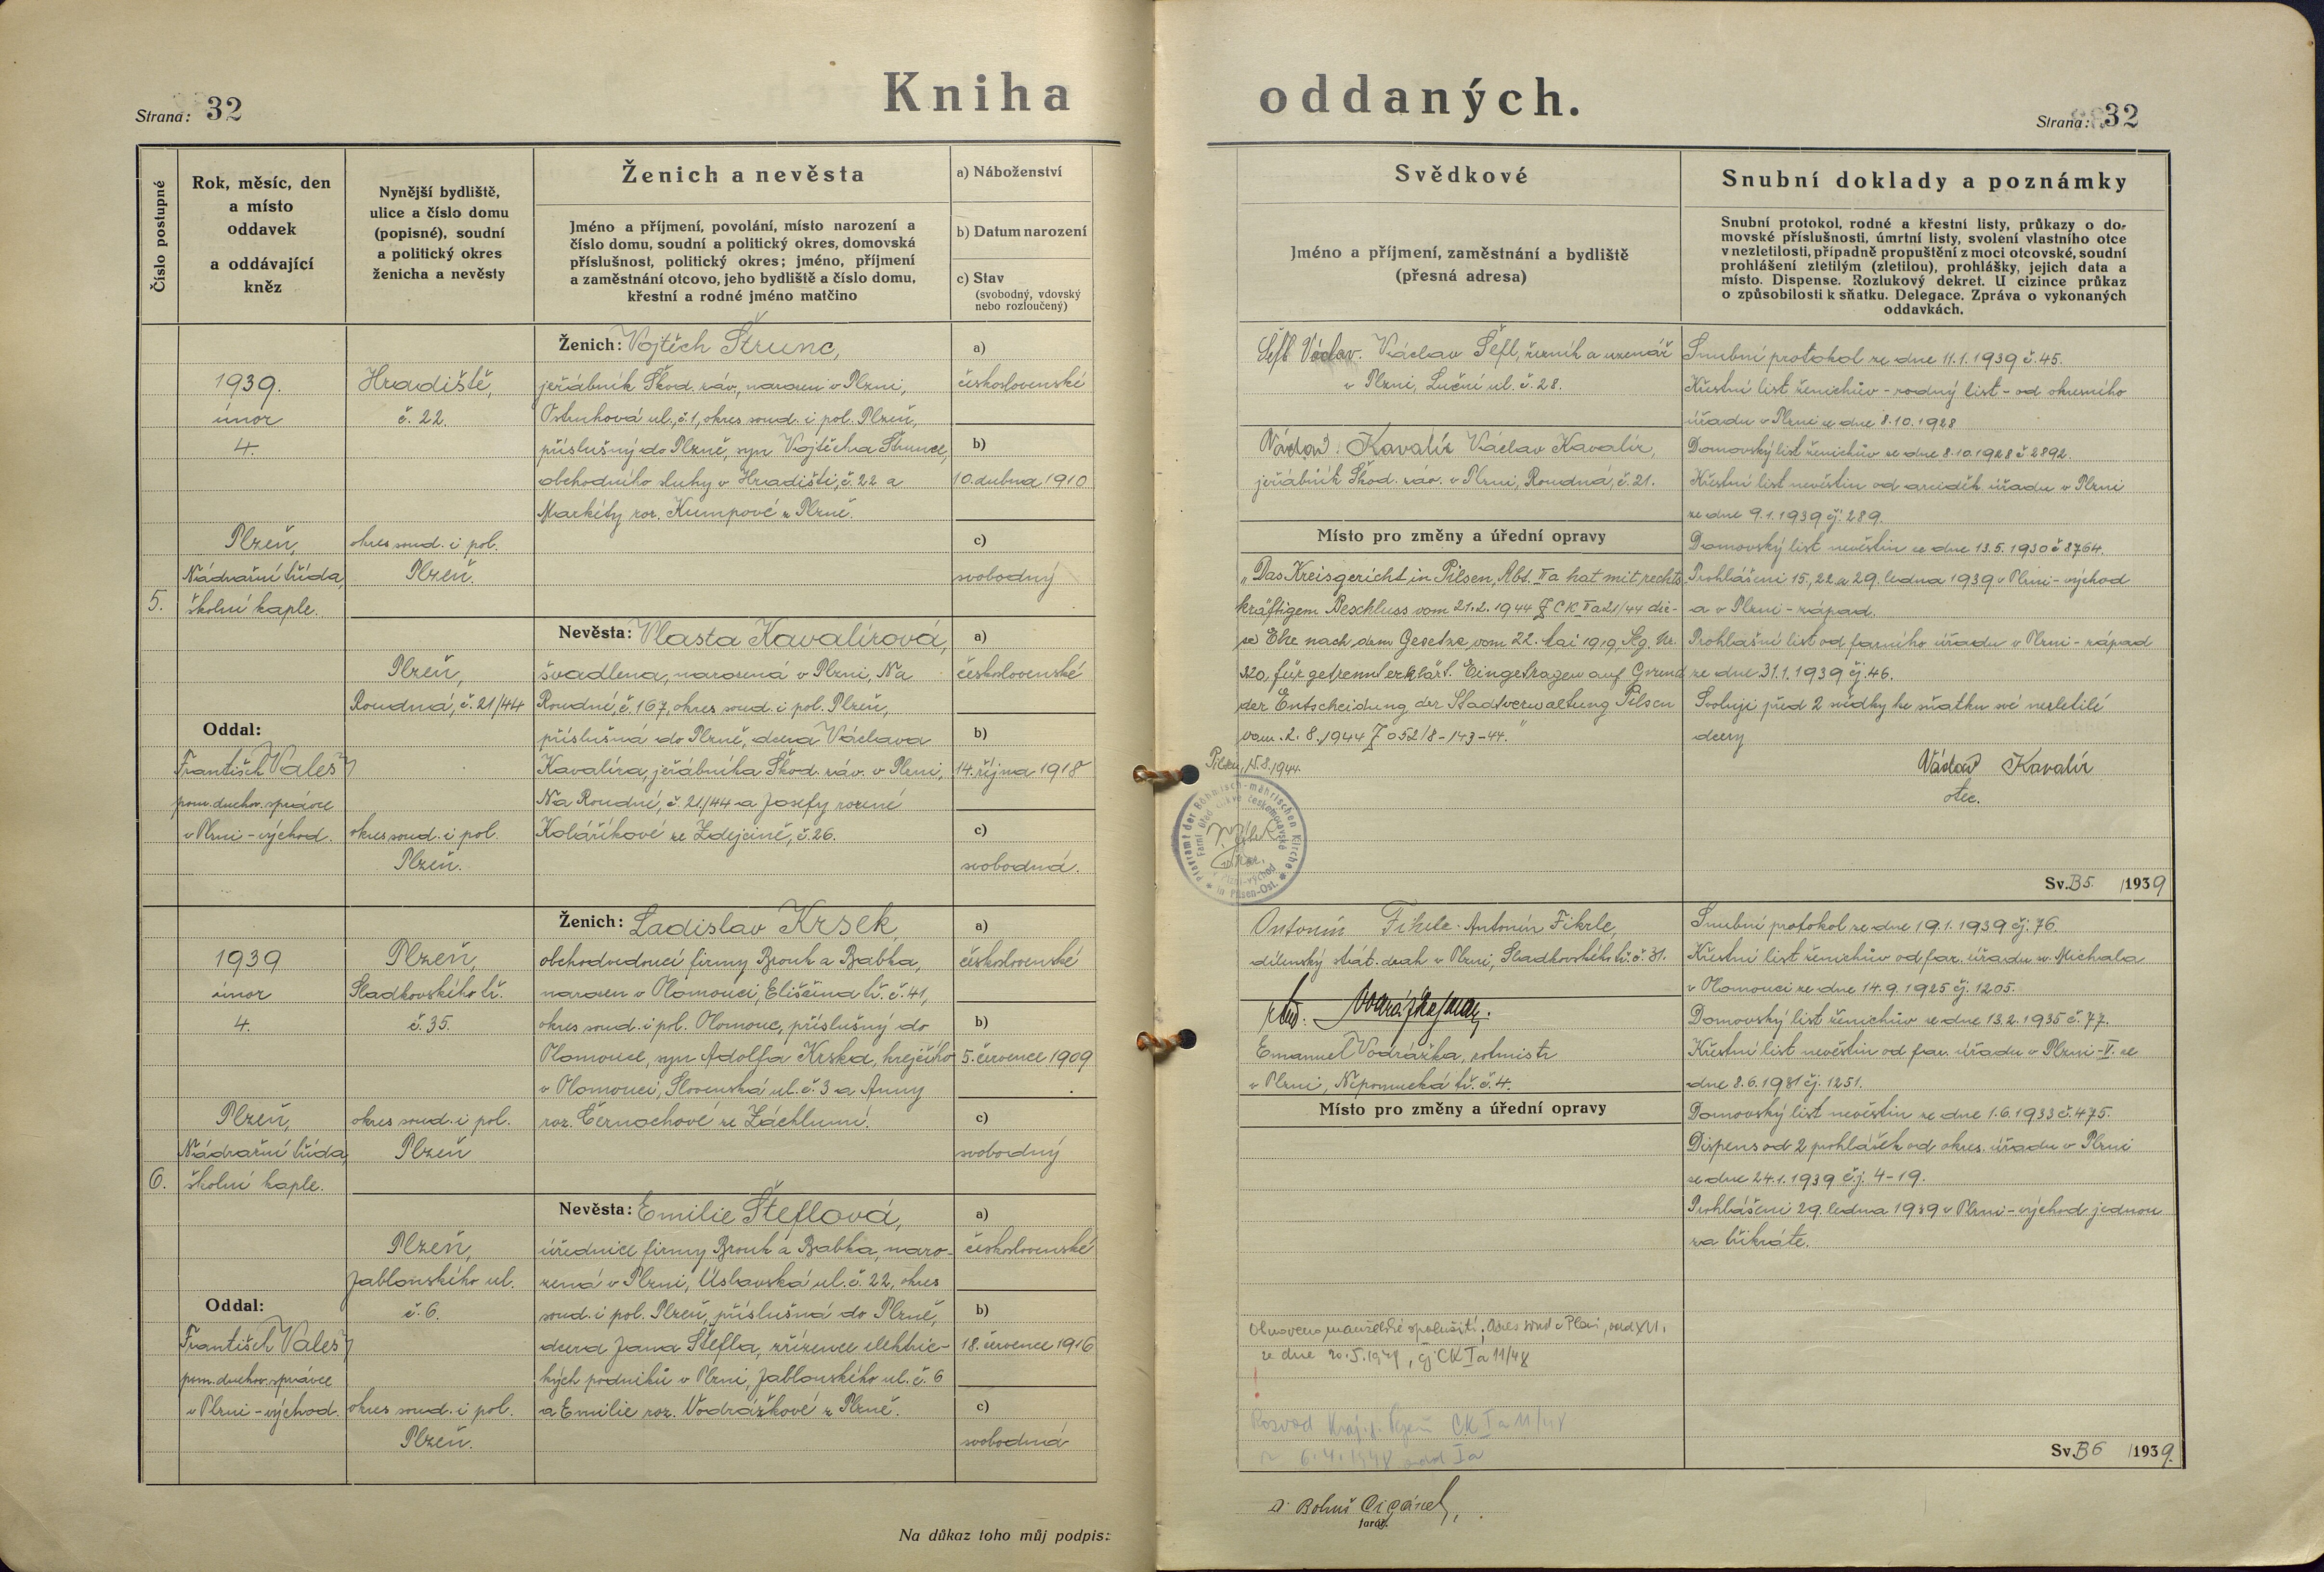 Kniha oddaných.
Strana: 32
Strana: 32
Číslo postupné
Rok, měsíc, den
a místo
oddavek
a oddávající
kněz
Nynější bydliště,
ulice a číslo domu
(popisné), soudní
a politický okres
ženicha a nevěsty
Ženich a nevěsta
Jméno a příjmení, povolání, místo narození a
číslo domu, soudní a politický okres, domovská
příslušnost, politický okres; jméno, příjmení
a zaměstnání otcovo, jeho bydliště a číslo domu,
křestní a rodné jméno matčino
a) Náboženství
b) Datum narození
c) Stav
(svobodný, vdovský
nebo rozloučený)
Svědkové
Jméno a příjmení, zaměstnání a bydliště
(přesná adresa)
Snubní doklady a poznámky
Snubní protokol, rodné a křestní listy, průkazy o do-
movské příslušnosti, úmrtní listy, svolení vlastního otce
v nezletilosti, případně propuštění z moci otcovské, soudní
prohlášení zletilým (zletilou), prohlášky, jejich data a
místo. Dispense. Rozlukový dekret. U cizince průkaz
o způsobilosti k sňatku. Delegace. Zpráva o vykonaných
oddavkách.
5.
1939.
únor
4.
Plzeň,
Nádražní třída,
školní kaple.
Oddal:
František Vales
pom. duchov. správce
v Plzni-východ.
Hradiště,
č. 22.
okres soud. i pol.
Plzeň.
Plzeň,
Roudná, č. 21/44
okres soud. i pol.
Plzeň.
Ženich: Vojtěch Štrunc,
jeřábník Škod. záv., narozen v Plzni,
Ostruhová ul., č. 1, okres soud. i pol. Plzeň,
příslušný do Plzně, syn Vojtěcha Štrunce,
obchodního sluhy v Hradišti, č. 22 a
Markéty roz. Kumpové z Plzně.
a)
československé
b)
10. dubna 1910
c)
svobodný
Nevěsta: Vlasta Kavalírová,
švadlena, narozená v Plzni, Na
Roudné, č 167, okres soud. i pol. Plzeň,
příslušná do Plzně, dcera Václava
Kavalíra, jeřábníka Škod. záv. v Plzni,
Na Roudné, č 21/44 a Josefy rozené
Kolaříkové ze Zdejcině, č. 26.
a)
československé
b)
14. října 1918
c)
svobodná.
Šefl Václav. Václav Šefl, řezník a uzenář
v Plzni, Luční ul. č. 28.
Václav Kavalír Václav Kavalír,
jeřábník Škod. záv. v Plzni, Roudná, č. 21.
Místo pro změny a úřední opravy
„Das Kreisgericht in Pilsen, Abt. IIa hat mit rechts-
kräftigem Beschluss vom 21.2.1944 Z CK Ia 21/44 die-
se Ehe nach dem Gesetze vom 22. Mai 1919, Slg. Nr.
320, für getrennt erklärt. Eingetragen auf Grund
der Entscheidung der Stadtverwaltung Pilsen
vom 2.8.1944 Z 052/8-143-44."
Pilsen, 15.8.1944.
Pfarramt der Böhmisch-mährischen Kirche
in Pilsen-Ost.
Farní úřad církve českomoravské
v Plzni-východ
Snubní protokol ze dne 11.1.1939 č. 45.
Křestní list ženichův - rodný list - od okresního
úřadu v Plzni ze dne 8.10.1928
Domovský list ženichův ze dne 8.10.1928 č 2892.
Křestní list nevěstin od arciděk. úřadu v Plzni
ze dne 9.1.1939 čj. 289.
Domovský list nevěstin ze dne 13.5.1930 č 8764.
Prohlášeni 15., 22. a 29. ledna 1939 v Plzni-východ
a v Plzni-západ.
Prohlašní list od farního úřadu v Plzni-západ
ze dne 31.1.1939 čj. 46.
Svoluji před 2 svědky ke sňatku své nezletilé
dcery
Václav Kavalír
otec.
Sv. B 5. /1939
6.
1939
únor
4.
Plzeň,
Nádražní třída,
školní kaple.
Oddal:
František Vales
pom. duchov. správce
v Plzni-východ.
Plzeň,
Sladkovského tř.
č. 35.
okres soud. i pol.
Plzeň
Plzeň,
Jablonského ul.
č. 6.
okres soud. i pol.
Plzeň.
Ženich: Ladislav Krsek
obchodvedoucí firmy Brouk a Babka,
narozen v Olomouci, Eliščina tř. č. 41,
okres soud. i pol. Olomouc, příslušný do
Olomouce, syn Adolfa Krska, krejčího
v Olomouci, Slovenská ul. č. 3 a Anny
roz. Černochové ze Záchlumí.
a)
československé
b)
5. července 1909
c)
svobodný
Nevěsta: Emilie Šteflová,
úřednice firmy Brouk a Babka, naro-
zená v Plzni, Úslavská ul. č. 22, okres
soud. i pol. Plzeň, příslušná do Plzně,
dcera Jana Štefla, zřízence elektric-
kých podniků v Plzni, Jablonského ul. č. 6
a Emilie roz. Vodrážkové z Plzně.
a)
československé
b)
18. července 1916
c)
svobodná
Antonín Fikrle. Antonín Fikrle,
dílenský stát. drah v Plzni, Sladkovského tř. č. 31.
Emanuel Vodrážka, rotmistr
v Plzni, Nepomucká tř. č. 4.
Místo pro změny a úřední opravy
Obnoveno manželské spolužití, Okres. soud v Plzni, odd XVI.
ze dne 20.5.1949, čj CK Ia 11/48
!
Rozvod Kraj. s. Plzeň CK Ia 11/48
6.4.1948 odd Ia
Snubní protokol ze dne 19.1.1939 čj. 76.
Křestní list ženichův od far. úřadu sv. Michala
v Olomouci ze dne 14.9.1925 čj. 1205.
Domovský list ženichův ze dne 13.2.1935 č. 77.
Křestní list nevěstin od far. úřadu v Plzni-V. ze
dne 8.6.1931 čj. 1251.
Domovský list nevěstin ze dne 1.6.1933 č. 475.
Dispens od 2 prohlášek od okres. úřadu v Plzni
ze dne 24.1.1939 čj. 4-19.
Prohlášeni 29. ledna 1939 v Plzni-východ jednou
za třikráte.
Sv. B 6 /1939.
Na důkaz toho můj podpis:
Bohuš Cigánek,
farář.